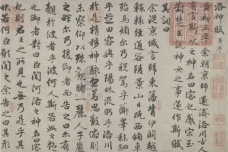 洛神賦 并序
黃初三年余朝京師還濟洛川古人
有言斯水之神名曰宓妃感宋玉對
楚王說神女之事遂作斯賦
其詞曰
余從京域言歸東藩背伊闕越
轘轅經通谷陵景山日既西傾車
殆馬煩爾乃稅駕乎蘅皋秣駟
乎芝田容與乎陽林流眄乎洛川於
是精移神駭忽焉思散俯則
未察仰以殊觀睹一麗人于巖
之畔爾乃援御者而告之曰爾有
覿於彼者乎彼何人斯若此之豔
也御者對曰臣聞河洛之神名曰宓
妃則君王之所見也無乃是乎其
狀若何臣願聞之余告之曰其形